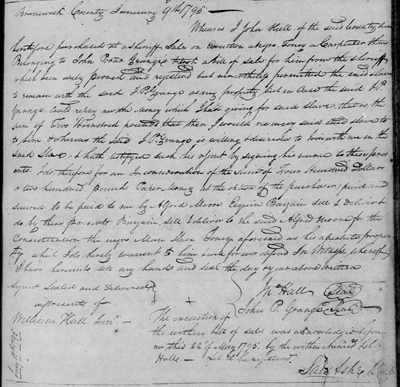 Brunswick County January 9th 1795 -
Whereas I John Hall of the said County
heretofore purchased at a Sheriff Sale on Execution a Negro Toney a Carpenter then
Belonging to John Peter Grange took a bill of Sale for him from the Sheriff
which been duly proved and registered but nevertheless permitted the said slave
to remain with the said J. P. Grange as my property but in Case the said
Grange could repay me the money which I had giving for said Slave, that
Sum of Two Hundred pounds that then I would reconvey said slave
to him & whereas the said J. P. Grange is willing & desirous to Join with me in the
Said Sale, & hath testifyed such his assent by signing his name to these presents
I do therefore for an In consideration of the Sum of Four Hundred Dollars
or two hundred Pound Paper Money at the option of the purchaser paid and
secured to be paid to me by Alfred Moore Esquire Bargain sell & Deliver &
do by these presents Bargain sell & deliver to the said Alfred Moore for the
Consideration the negro Man Slave Toney aforesaid as his absolute property
which I do hereby warrent & forever defend In Witness whereof
I have hereunto set my hand and seal the day
Signed Sealed and Delivered
in presents of
William Hall Junr.
Jno Hall Seal
John P. Grange Seal
The execution of
the within bill of sale was acknowledged before
me this 22d of May 1795 by the within named John
Hall - Let it be registered